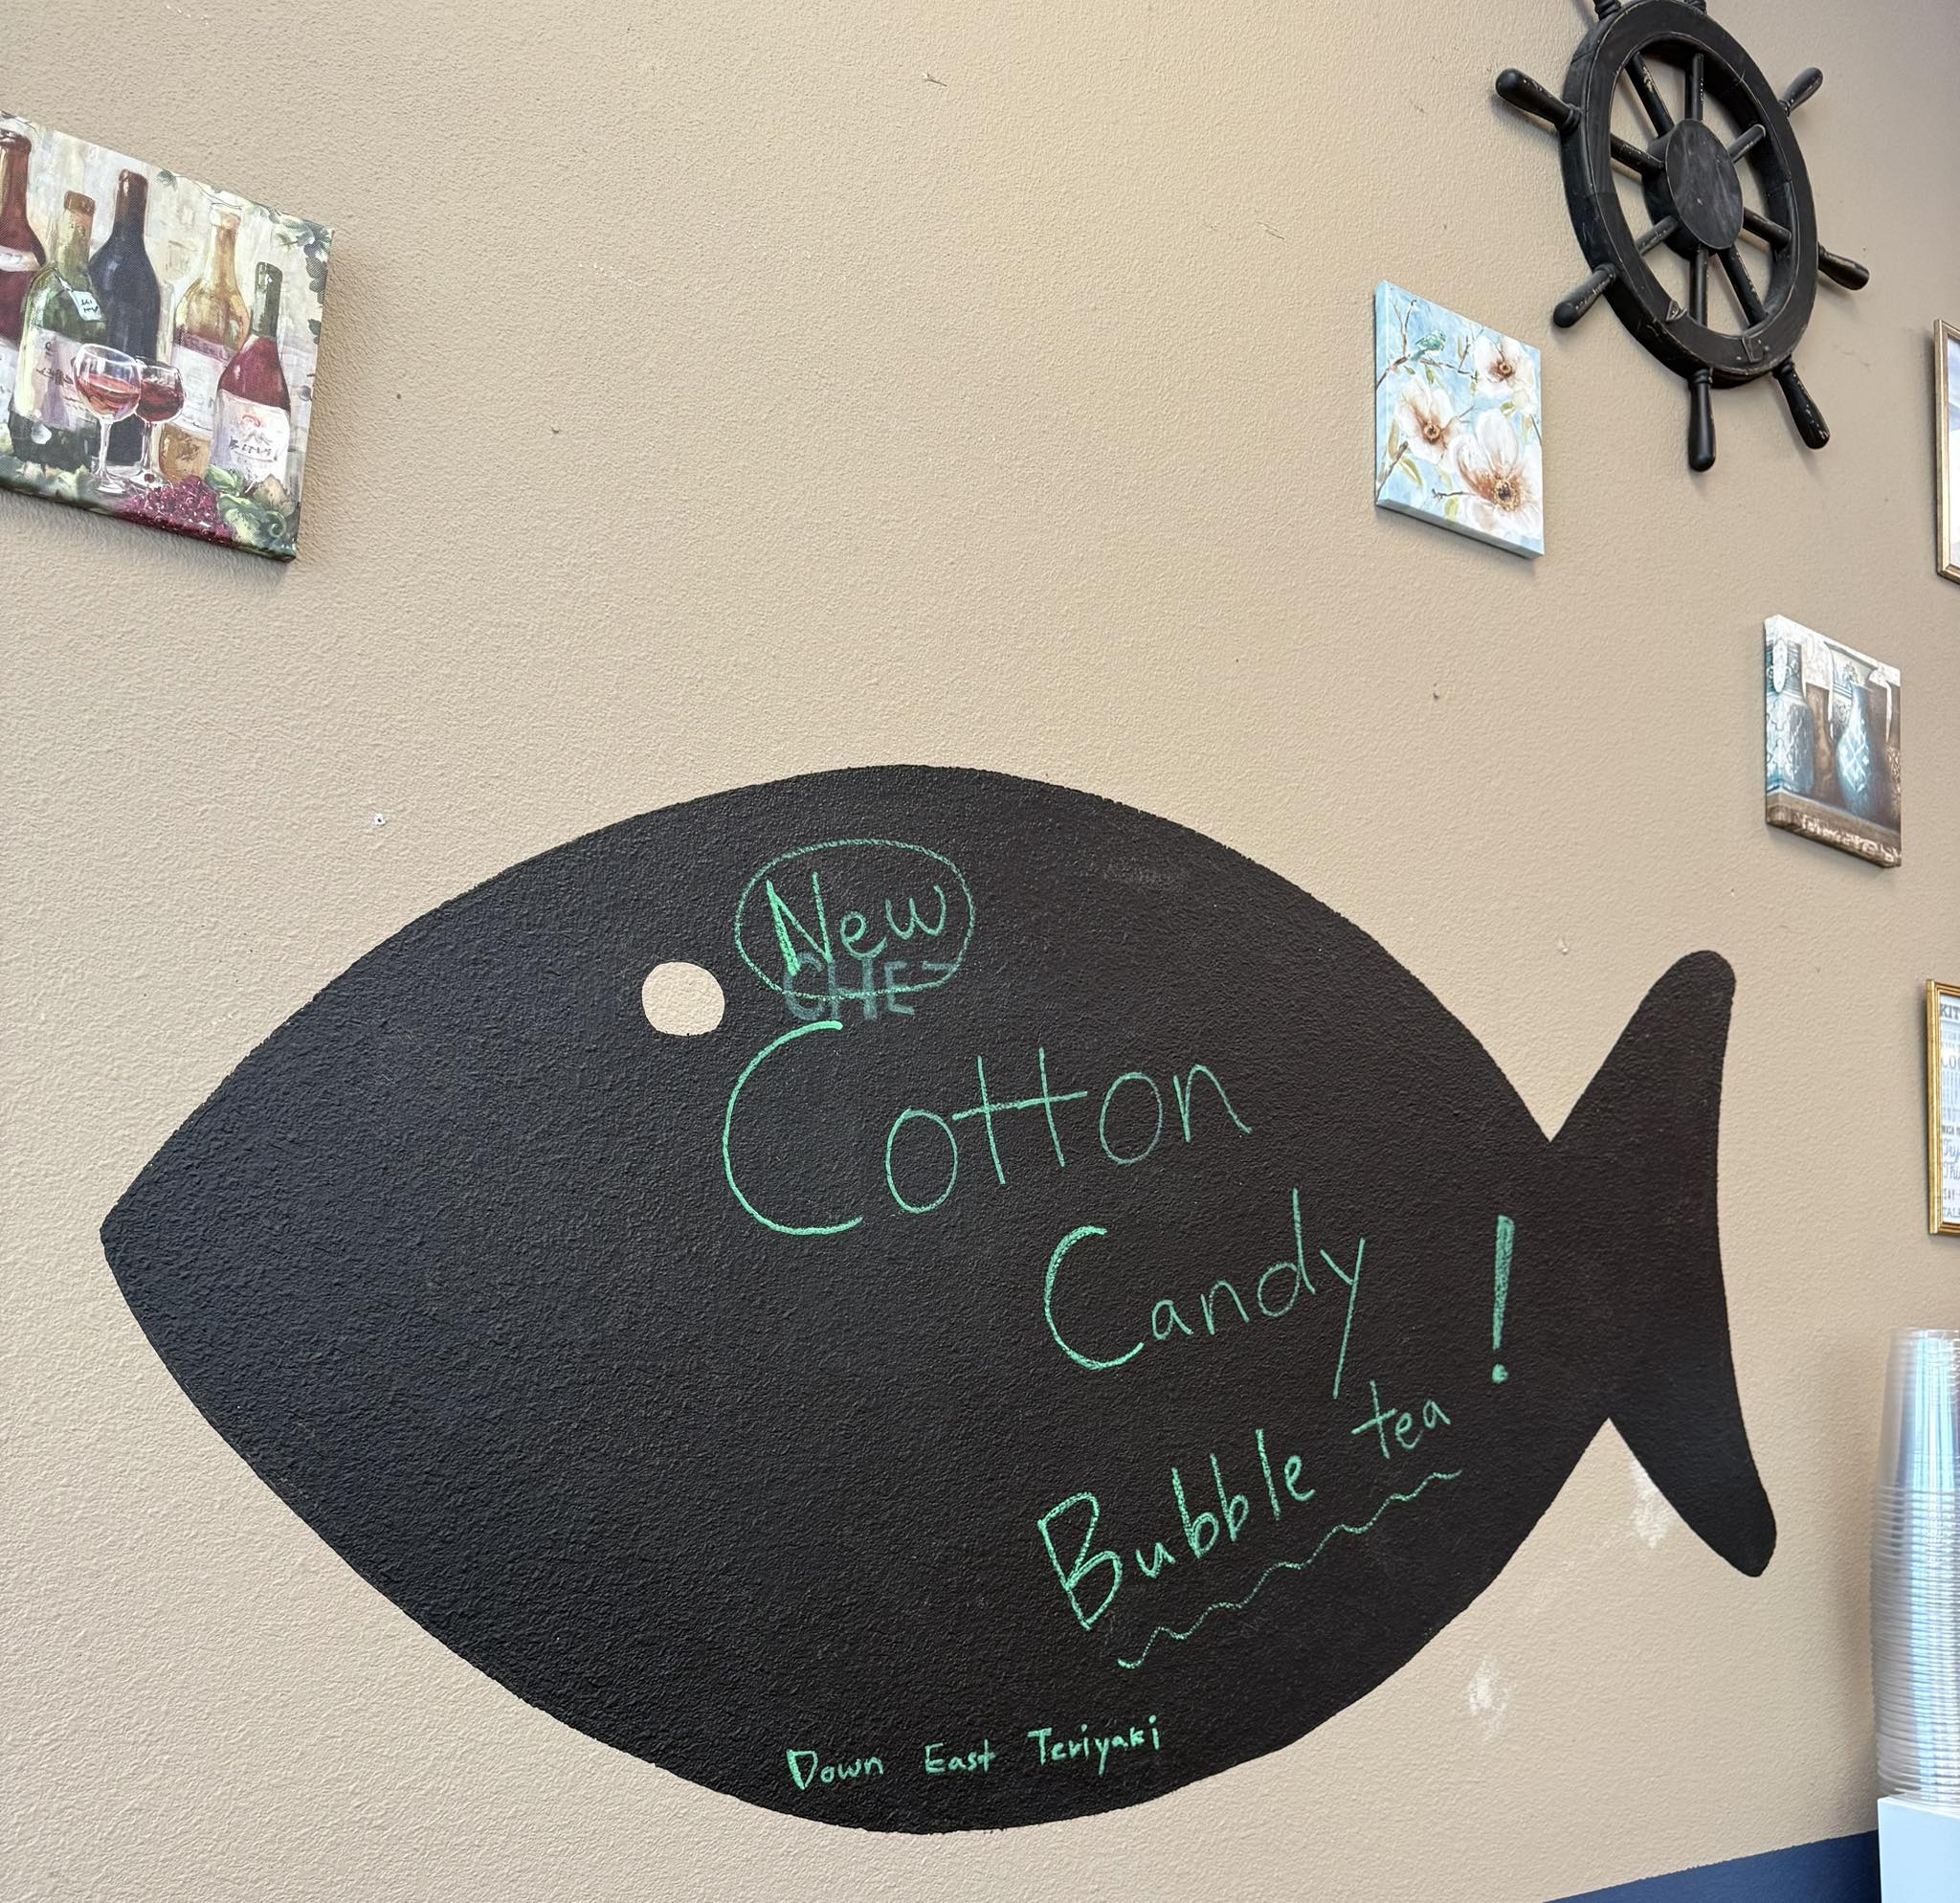 New
Cotton
Candy !
Bubble tea
Down East Teriyaki